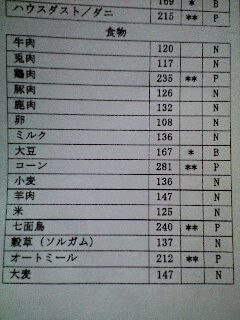 169 * B
ハウスダスト／ダニ 215 ** P
食物
牛肉 120 N
兎肉 117 N
鶏肉 235 ** P
豚肉 126 N
鹿肉 132 N
卵 108 N
ミルク 136 N
大豆 167 * B
コーン 281 ** P
小麦 136 N
羊肉 147 N
米 125 N
七面鳥 240 ** P
穀草（ソルガム） 137 N
オートミール 212 ** P
大麦 147 N